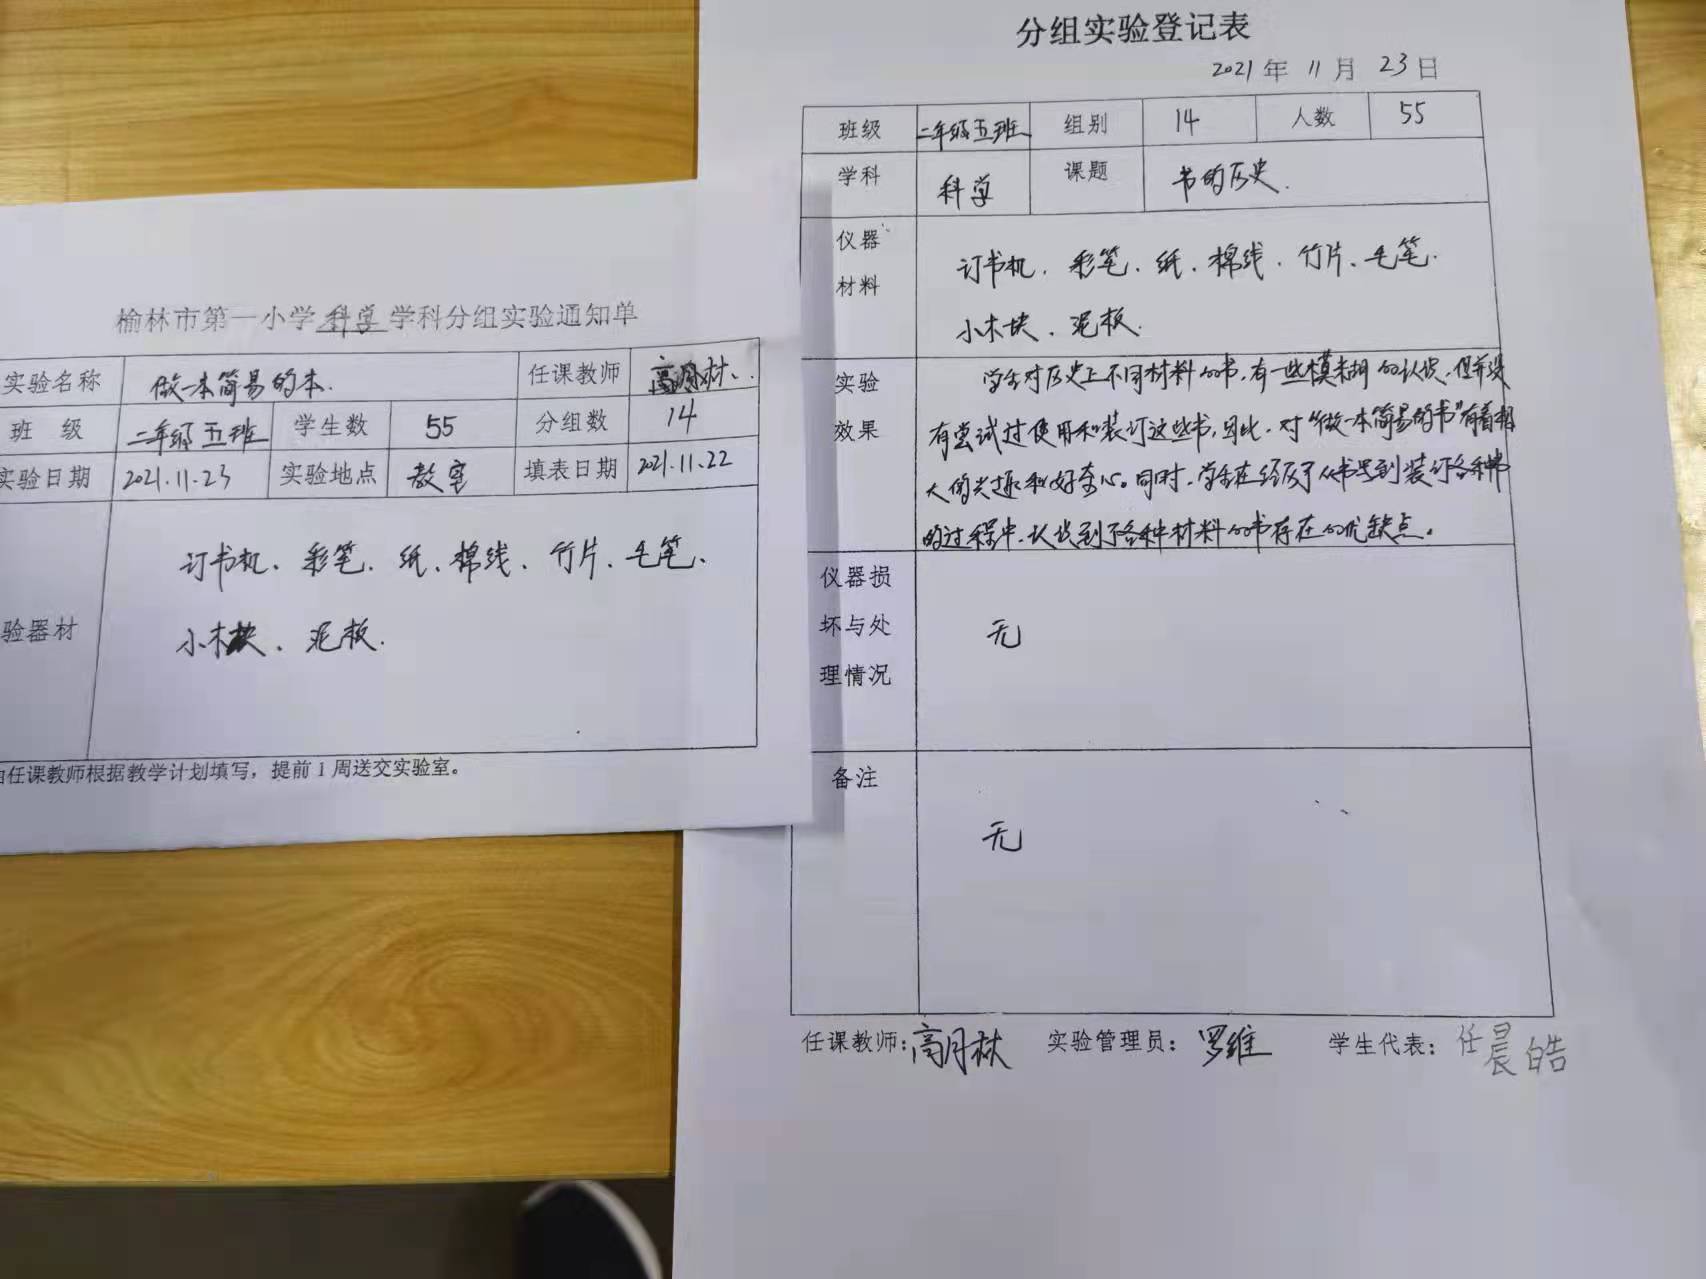 榆林市第一小学科学学科分组实验通知单
实验名称 做一本简易的本. 任课教师 高月林
班 级 二年级五班 学生数 55 分组数 14
实验日期 2021.11.23 实验地点 教室 填表日期 2021.11.22
验器材 订书机、彩笔、纸、棉线、竹片、毛笔、
小木块、泥板.
由任课教师根据教学计划填写，提前1周送交实验室。
分组实验登记表
2021年 11月 23日
班级 二年级五班 组别 14 人数 55
学科 科学 课题 书的历史.
仪器 订书机、彩笔、纸、棉线、竹片、毛笔.
材料 小木块、泥板.
实验 学生对历史上不同材料的书，有一些模糊的认识，但并没
效果 有尝试过使用和装订这些书，因此，对“做一本简易的书”有着相
大的兴趣和好奇心。同时，学生在经历了从书写到装订各种书
的过程中，认识到了各种材料的书存在的优缺点。
仪器损
坏与处 无
理情况
备注
无
任课教师：高月林 实验管理员：罗维 学生代表：任晨皓